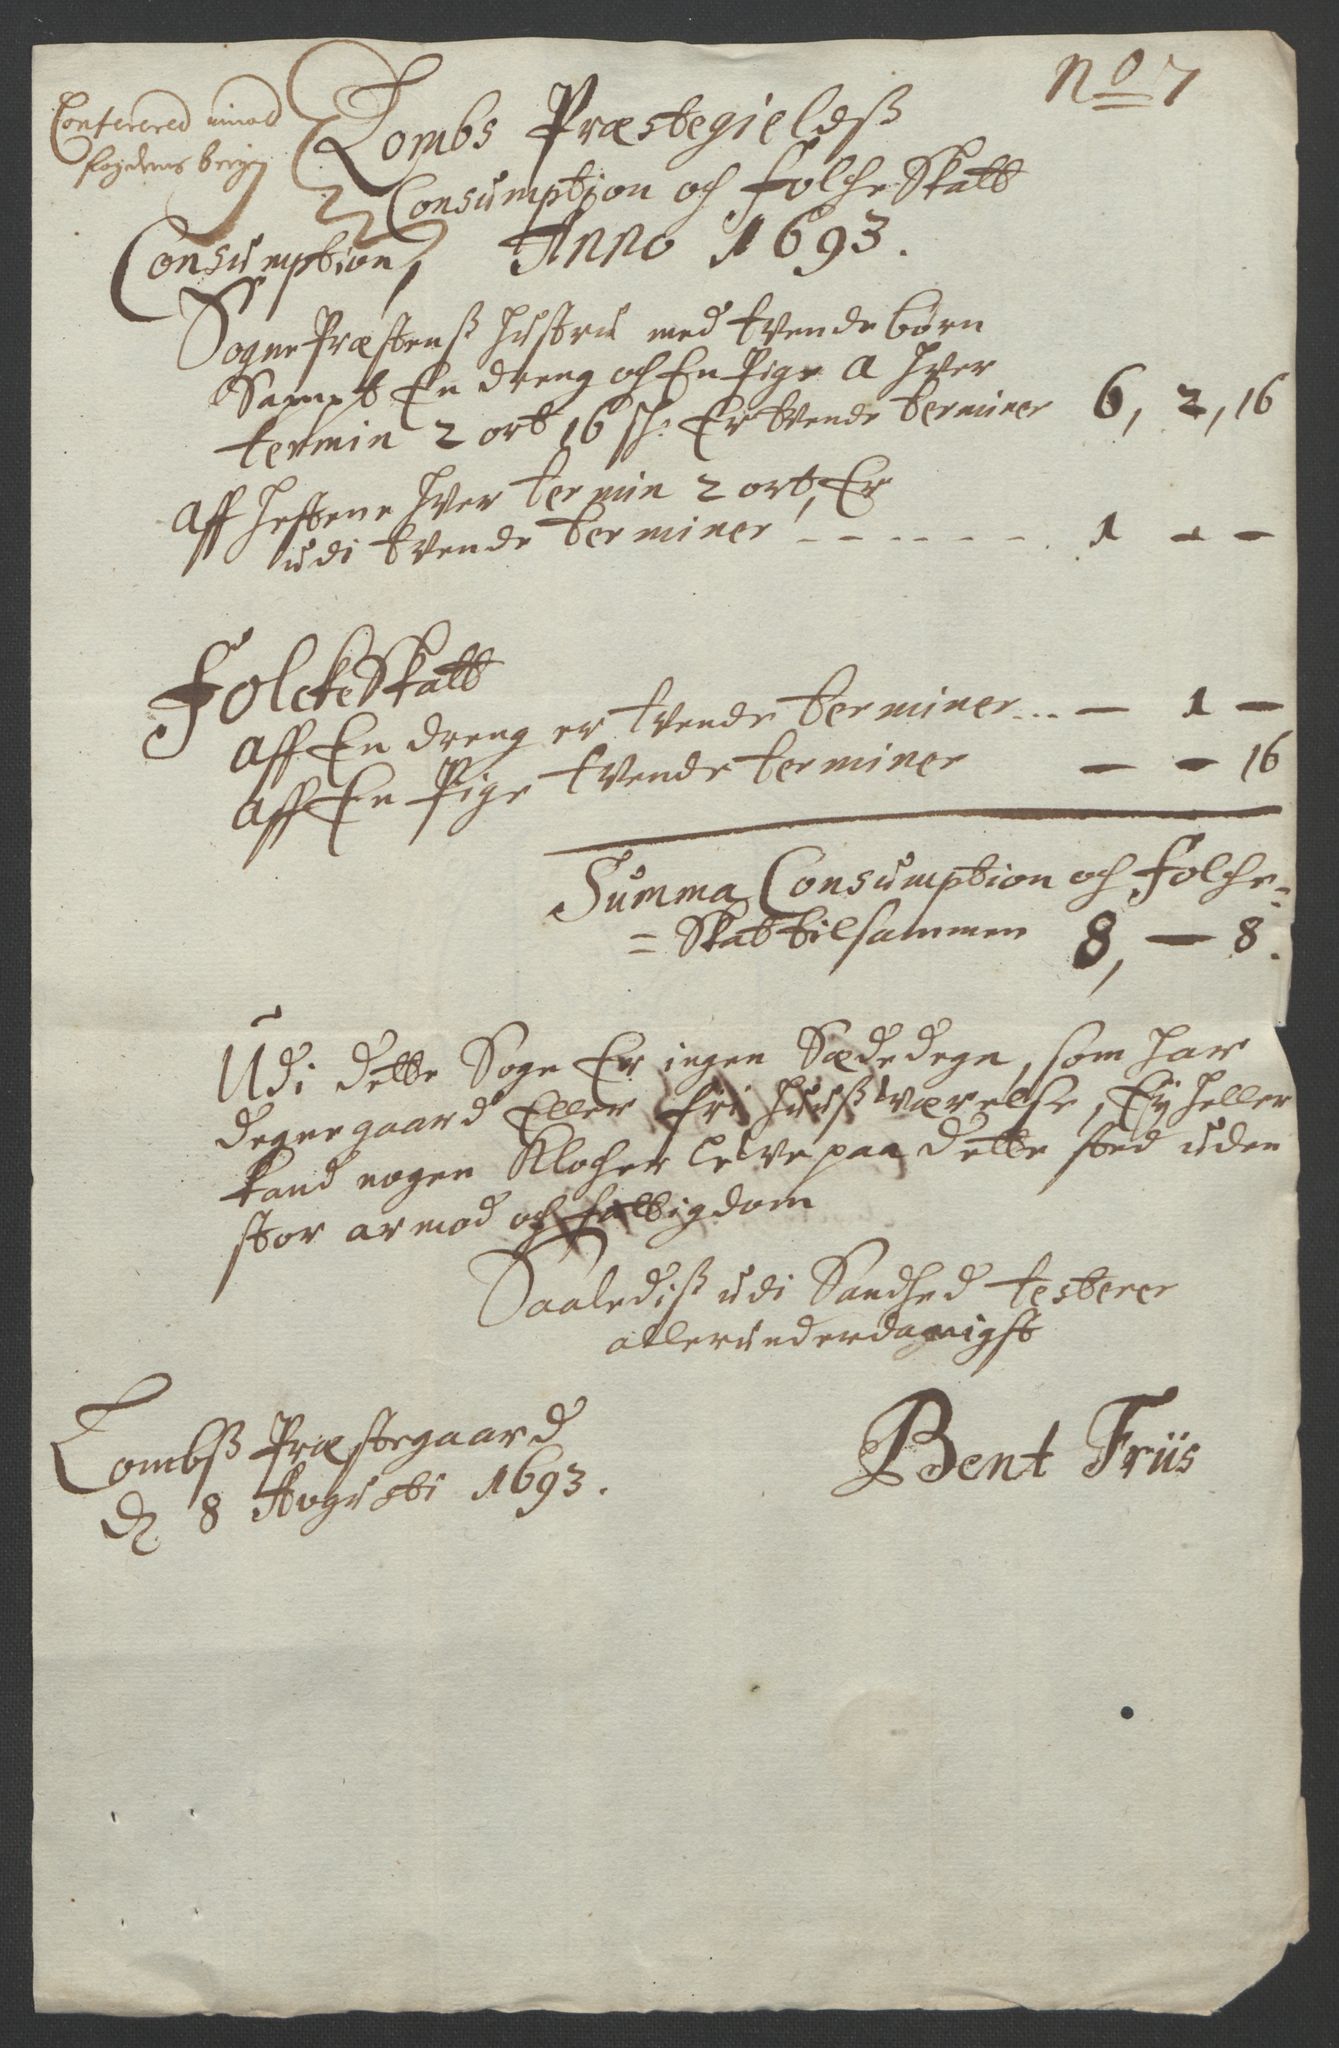 No 7
Conferered imod
fogdens
Lombs Præstegieldß
Consumption och folche Skatt
Consumption, Anno 1693.
Sogne Præstenß hustru med tvende børn
Sampt En dreng och En Pige a hver
termin 2 ort 16 sh: Er tvende terminer 6, 2, 16
Aff hestene hver termin 2 ort, Er
udi tvende terminer - - - - - - 1 - -
FolckeSkatt
Aff En dreng er tvende terminer... - 1 -
Aff En Pige tvende terminer - - 16
Summa Consumption och folche=
=Skatt tilsammen 8, - 8.
Udi dette Sogn Er ingen Sædedegn, som har
degnegaard Eller fri huußværelse, Ey heller
kand nogen Klocher leve paa dette sted uden
stor armod och fattigdom
Saalediß udi Sandhed testerer
allerunderdanigst
Lombß Præstegaard
d 8 Augusti 1693.
Bent Friis